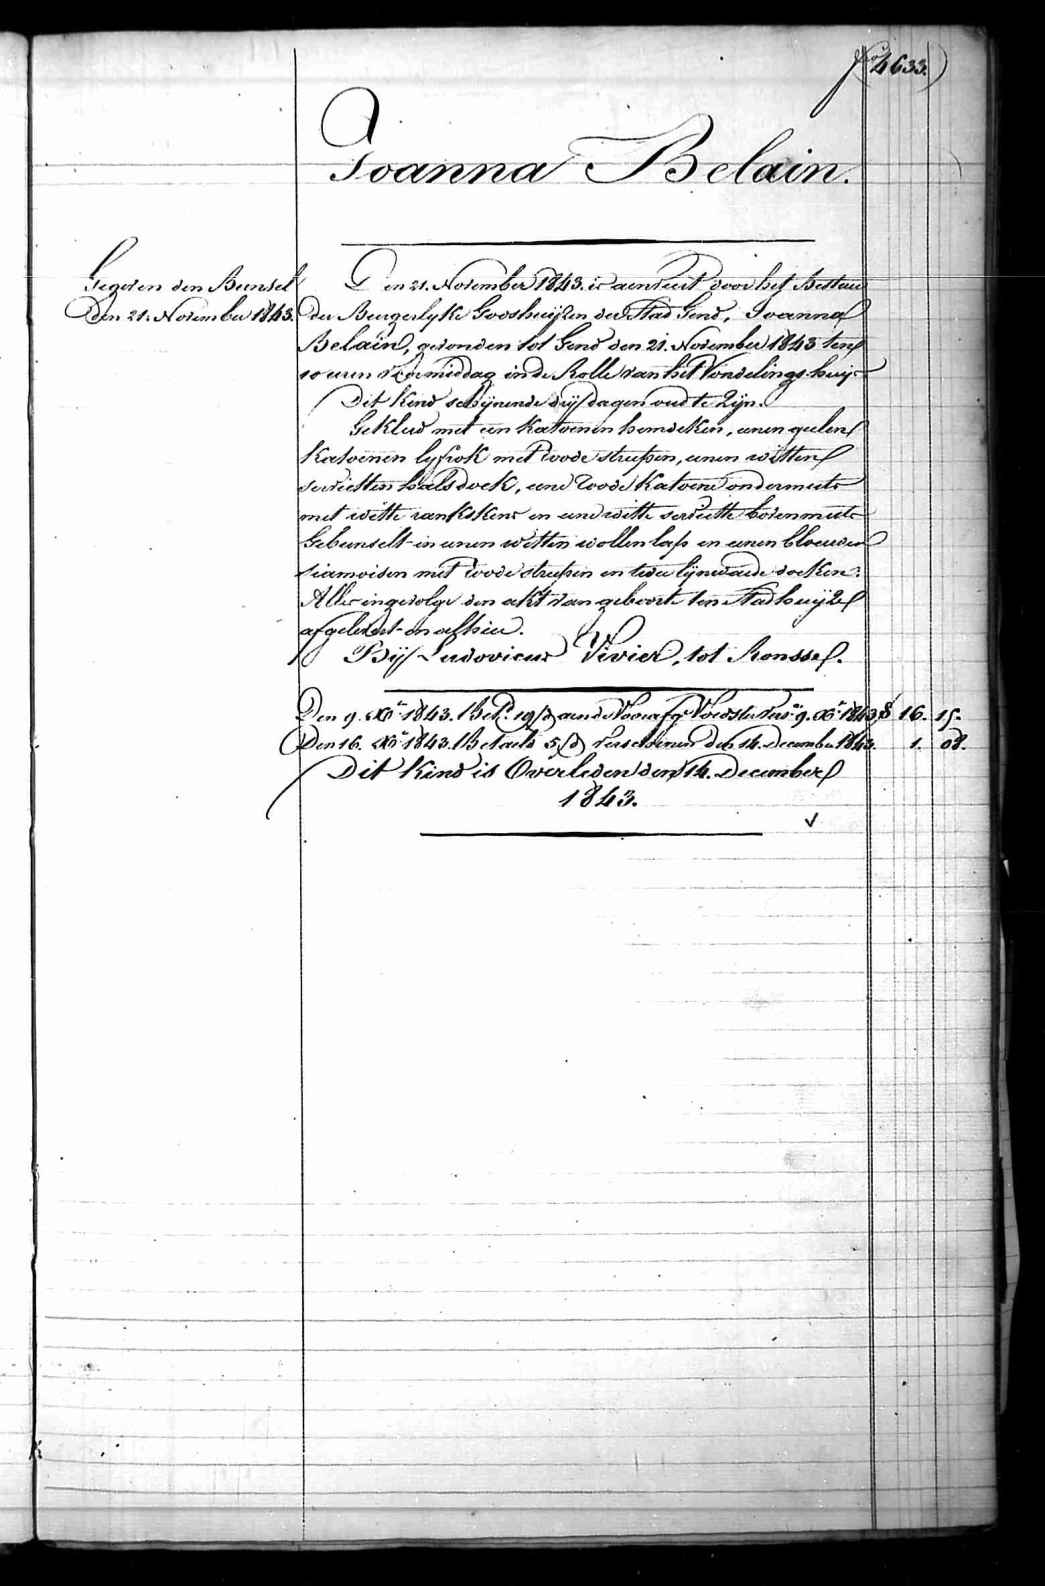 4633.
Joanna Belain.
Gegeven den Bunsel
Den 21. November 1843.
Den 21. November 1843. is aenveert door het Bestuer
der Burgerlyke Godshuijzen der Stad Gend, Joanna
Belain, gevonden tot Gend den 21. November 1843 ten
10 uren voormiddag in de Rolle van het Vondelingshuijs
Dit kind schijnende drij dagen oud te Zijn.
Gekleed met een katoenen hemdeken, eenen geelen
katoenen lyfrok met roode streepen, eenen witten
servietten halsdoek, eene roode katoene ondermuts
met witte en eene witte serviette bovenmuts
Gebunselt in eenen witten wollen lap en eenen blauwen
siamoisen met roode streepen en twee lijnwaede doeken.
Alles ingevolge den akt van geboorte ten Stadhuijze
afgelevert onder.
Bij Ludovicus Vivier, tot Ronsse.
Den 9. Xbr. 1843. Bet. 19 d aen de Voedster 9. Xbr. 1843 16. 15.
Den 16. Xbr. 1843. Betaelt 5 d verschenen den 14. December 1843. 1. 08.
Dit Kind is Overleden den 14. December
1843.